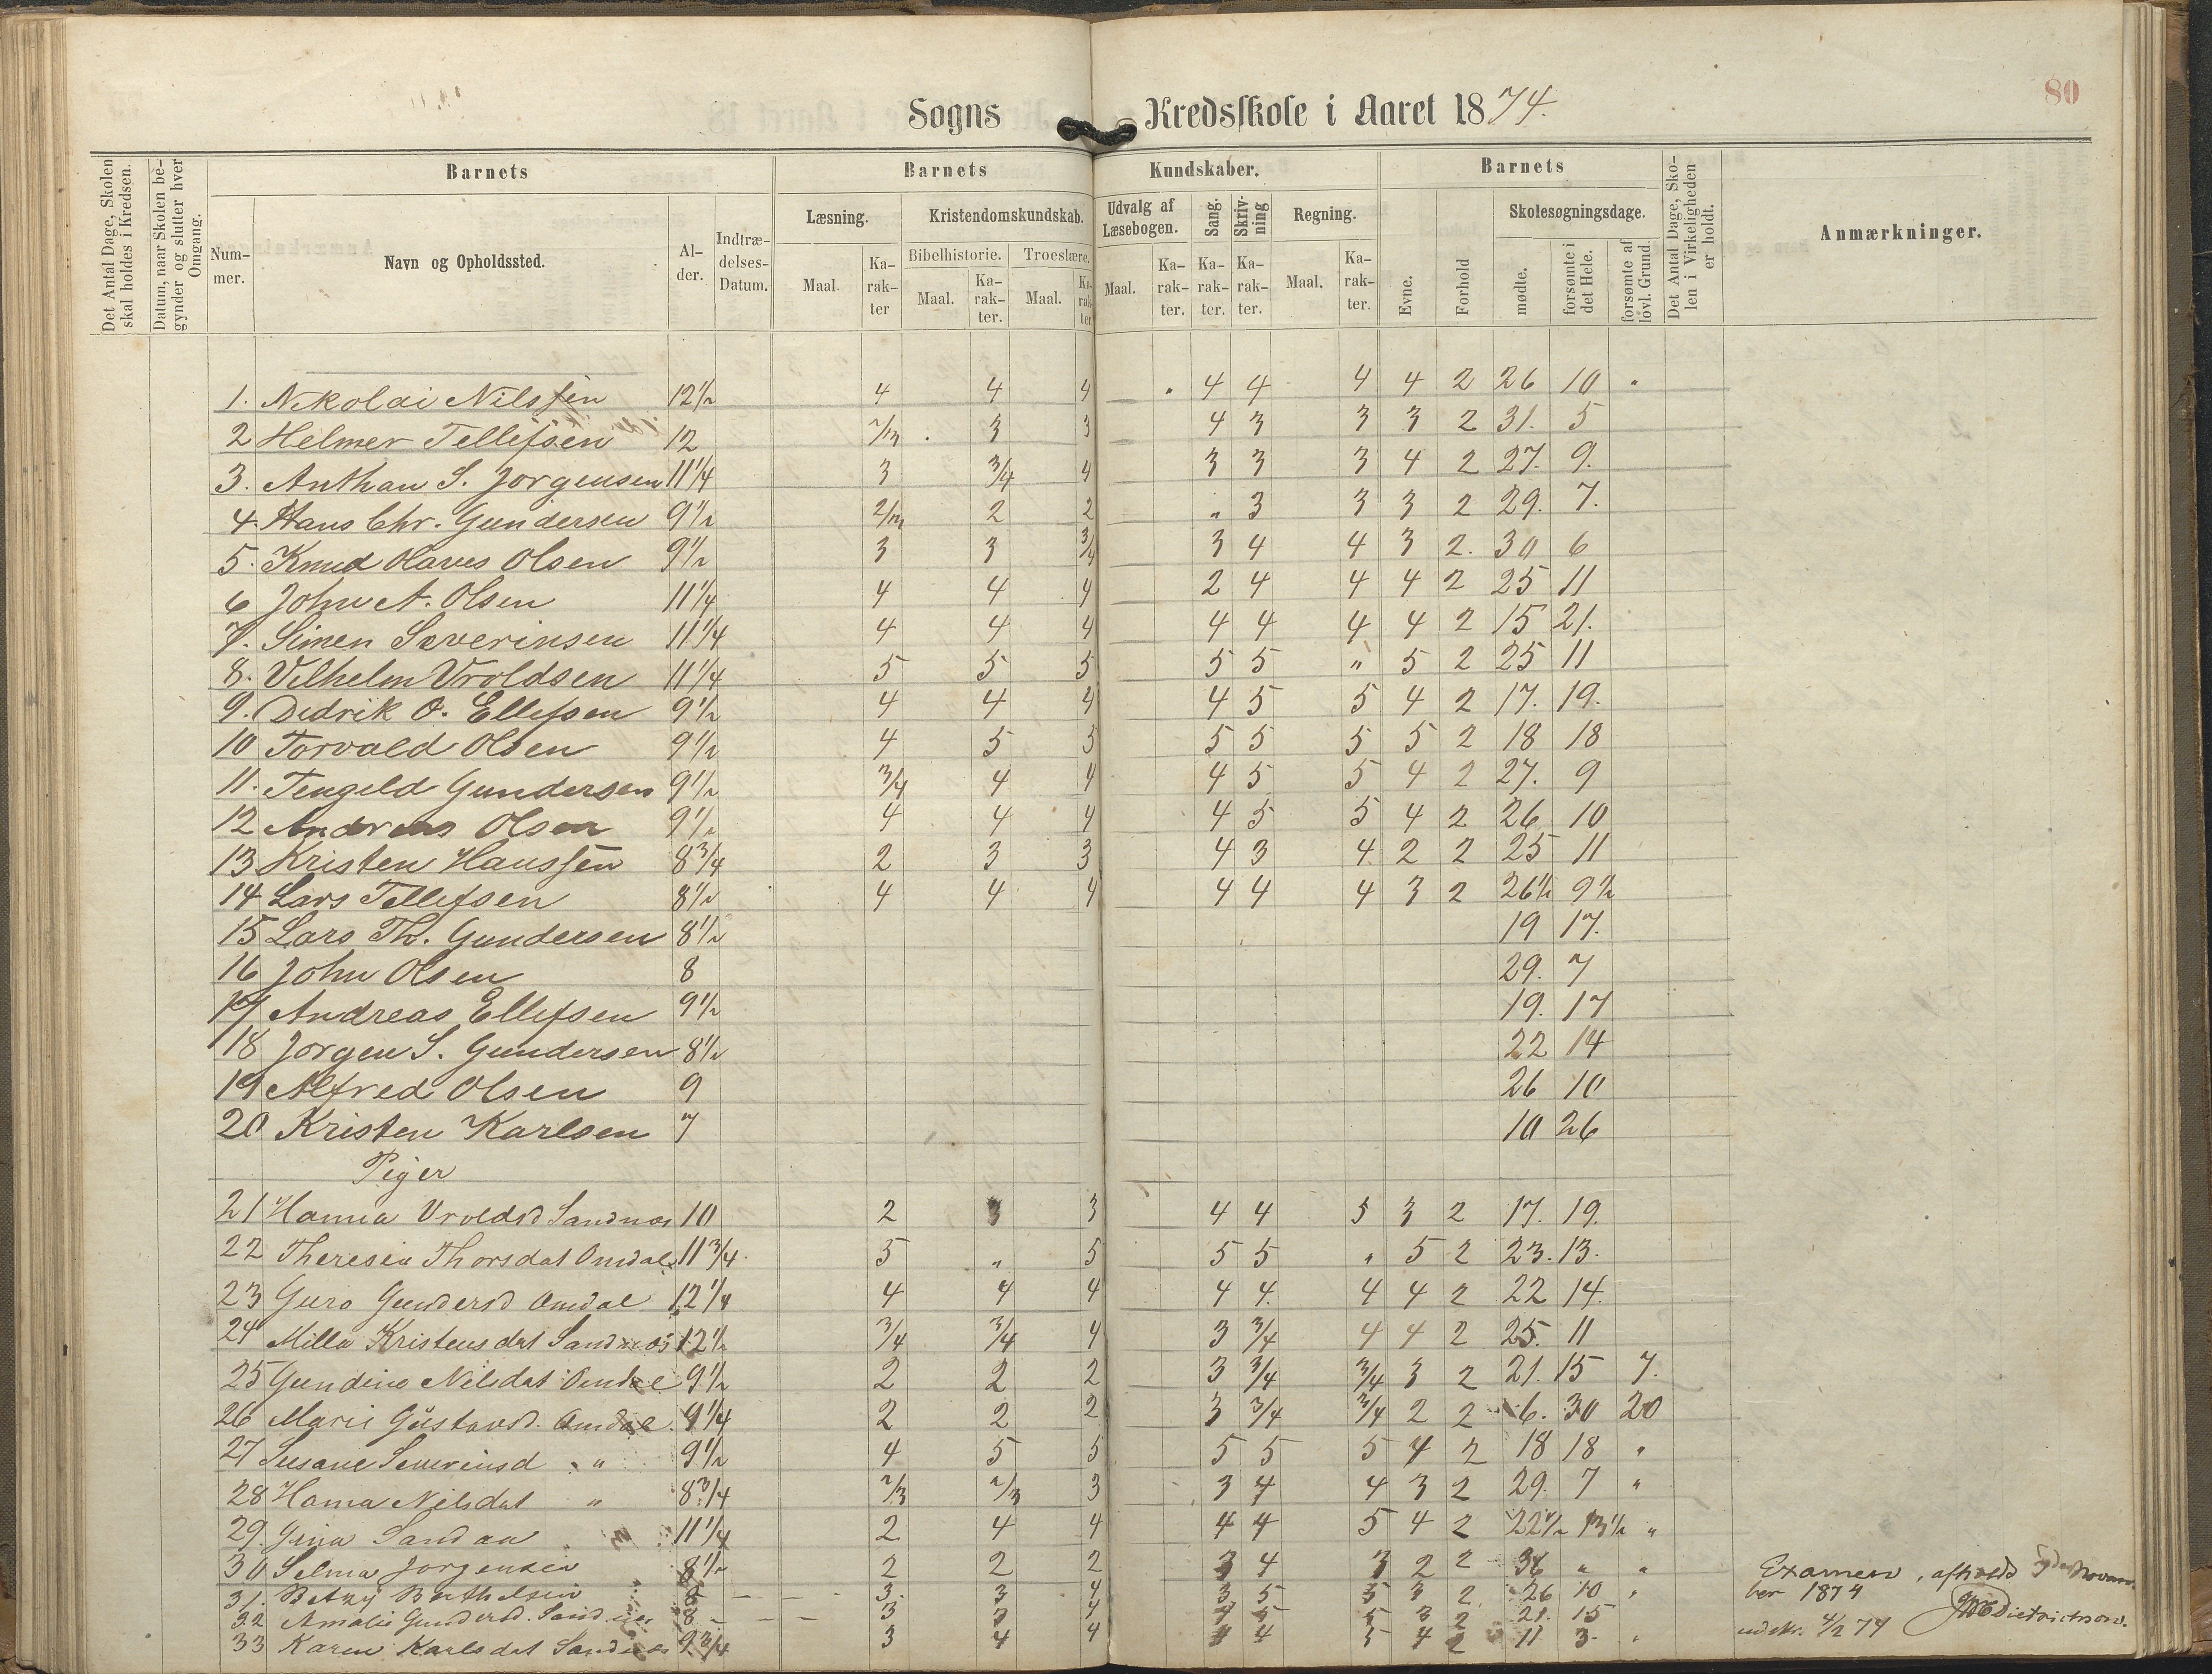 80
Sogns Kredsskole i Aaret 1874.
Det Antal Dage, Skolen skal holdes i Kredsen.
Datum, naar Skolen begynder og slutter hver Omgang.
Barnets
Barnets Kundskaber.
Barnets
Det Antal Dage, Skolen i Virkeligheden er holdt.
Anmærkninger.
Nummer.
Navn og Opholdssted.
Alder.
Indtrædelses-Datum.
Læsning.
Kristendomskundskab.
Udvalg af Læsebogen.
Sang.
Skrivning
Regning.
Evne.
Forhold
Skolesøgningsdage.
Bibelhistorie.
Troeslære.
Maal. Karakter Maal. Karakter. Maal. Karakter. Maal. Karakter. Karakter. Karakter. Maal. Karakter.
mødte.
forsømte i det Hele.
forsømte af lovl. Grund.
1. Nikolai Nilssen 12½ 4 4 4 " 4 4 4 4 2 26 10 "
2 Helmer Tellefsen 12 2/3 3 3 4 3 3 3 2 31. 5
3. Anthan S. Jorgensen 11¼ 3 3/4 4 3 3 3 4 2 27. 9.
4. Hans Chr. Gundersen 9½ 2/3 2 2 " 3 3 3 2 29. 7.
5. Knud Olaves Olsen 9½ 3 3 3/4 3 4 4 3 2. 30 6
6 John A. Olsen 11¼ 4 4 4 2 4 4 4 2 25 11
7. Simen Severinsen 11¼ 4 4 4 4 4 4 4 2 15 21.
8. Vilhelm Vroldsen 11¼ 5 5 5 5 5 " 5 2 25 11
9. Didrik O. Ellefsen 9½ 4 4 4 4 5 5 4 2 17. 19.
10 Torvald Olsen 9½ 4 5 5 5 5 5 5 2 18 18
11. Tengeld Gundersen 9½ 3/4 4 4 4 5 5 4 2 27. 9
12 Andreas Olsen 9½ 4 4 4 4 5 5 4 2 26 10
13 Kristen Hanssen 8¾ 2 3 3 4 3 4 2 2 25 11
14 Lars Tellefsen 8½ 4 4 4 4 4 4 3 2 26½ 9½
15 Lars Th. Gundersen 8½ 19 17.
16 John Olsen 8 29. 7
17 Andreas Ellefsen 9½ 19. 17
18 Jorgen S. Gundersen 8½ 22 14
19 Alfred Olsen 9 26 10
20 Kristen Karlsen 7 10 26
Piger
21 Hanna Vroldsd Sandnæs 10 2 3 3 4 4 5 3 2 17. 19.
22 Theresia Thorsdat Omdal 11¾ 5 " 5 5 5 " 5 2 23. 13.
23 Guro Gundersd Omdal 12¼ 4 4 4 4 4. 4 4 2 22 14.
24 Milla Kristensdat Sandnæs 12½ 3/4 3/4 4 3 3/4 4 4 2 25. 11
25 Gundine Nilsdat Omdal 9½ 2 2 2 3 3/4 3/4 3 2 21. 15 7.
26 Marie Güstavsd. Omdal 9¼ 2 2 2 3 3/4 3/4 2 2 6. 30 20
27 Susane Severinsd " 9½ 4 5 5 5 5 5 4 2 18 18 "
28 Hanna Nilsdat " 8¾ 2/3 2/3 3 3 4 4 3 2 29. 7 "
29. Gina Sandaa 11¼ 2 4 4 4 4 5 4 2 22½ 13½ "
30 Selma Jorgensen 8½ 2 2 2 3 4 3 2 2 36 " "
31. Betzy Berthelsen 8 3. 3 4 3 5 5 3 2 26 10 "
32 Amalie Gundersd. Sandnæs 8 3 3 4 4 5 5 3 2 21. 15
33 Karen Karlsdat Sandnæs 9¾ 3 4 4 4 4 5 4 2 11 3. "
Examen, afholdt November 1874
indsk. 4/12 74 Dietrichson.